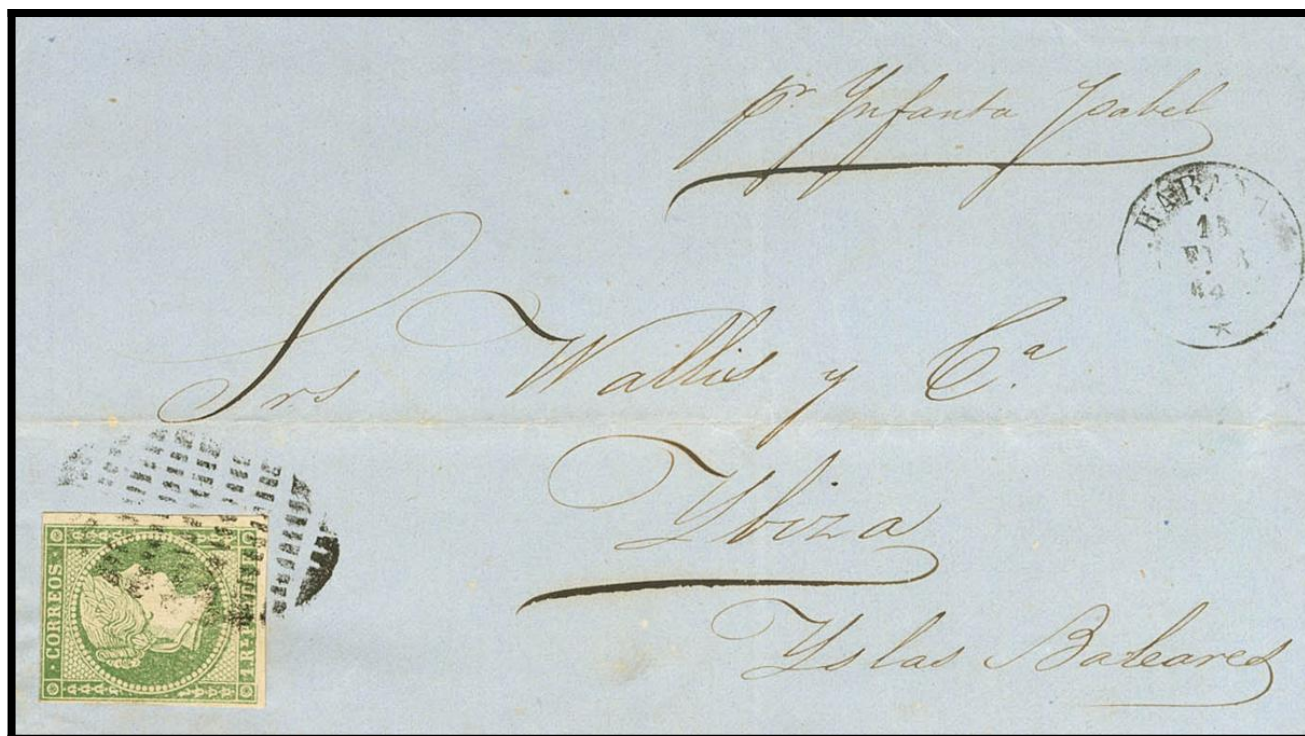 pr. Ynfanta Ysabel
HABANA
15
Srs Wallis y Ca.
Ybiza
Yslas Baleares
CORREOS